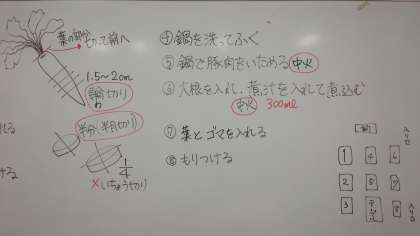 葉の部分
切って前へ
1.5〜2cm
輪切り
わ
半分、半月切り
1/4
×いちょう切り
れる
ける
④鍋を洗ってふく
⑤鍋で豚肉をいためる 中火
⑥大根を入れ、煮汁を入れて煮込む
中火 300ml
⑦葉とゴマを入れる
⑧もりつける
入り口
1 4 6
2 5 7
3 8
入り口